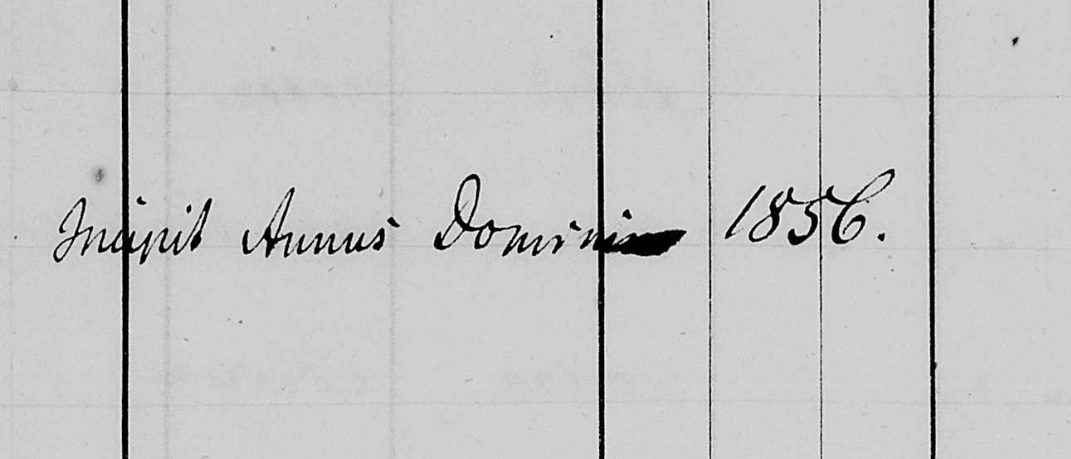 Incipit Annus Domini 1856.